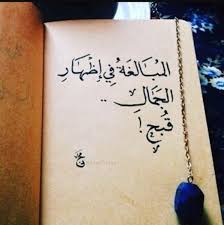 المبَالغَةُ فِي إظهَارِ
الجَمَالِ ..
قُبحٌ !